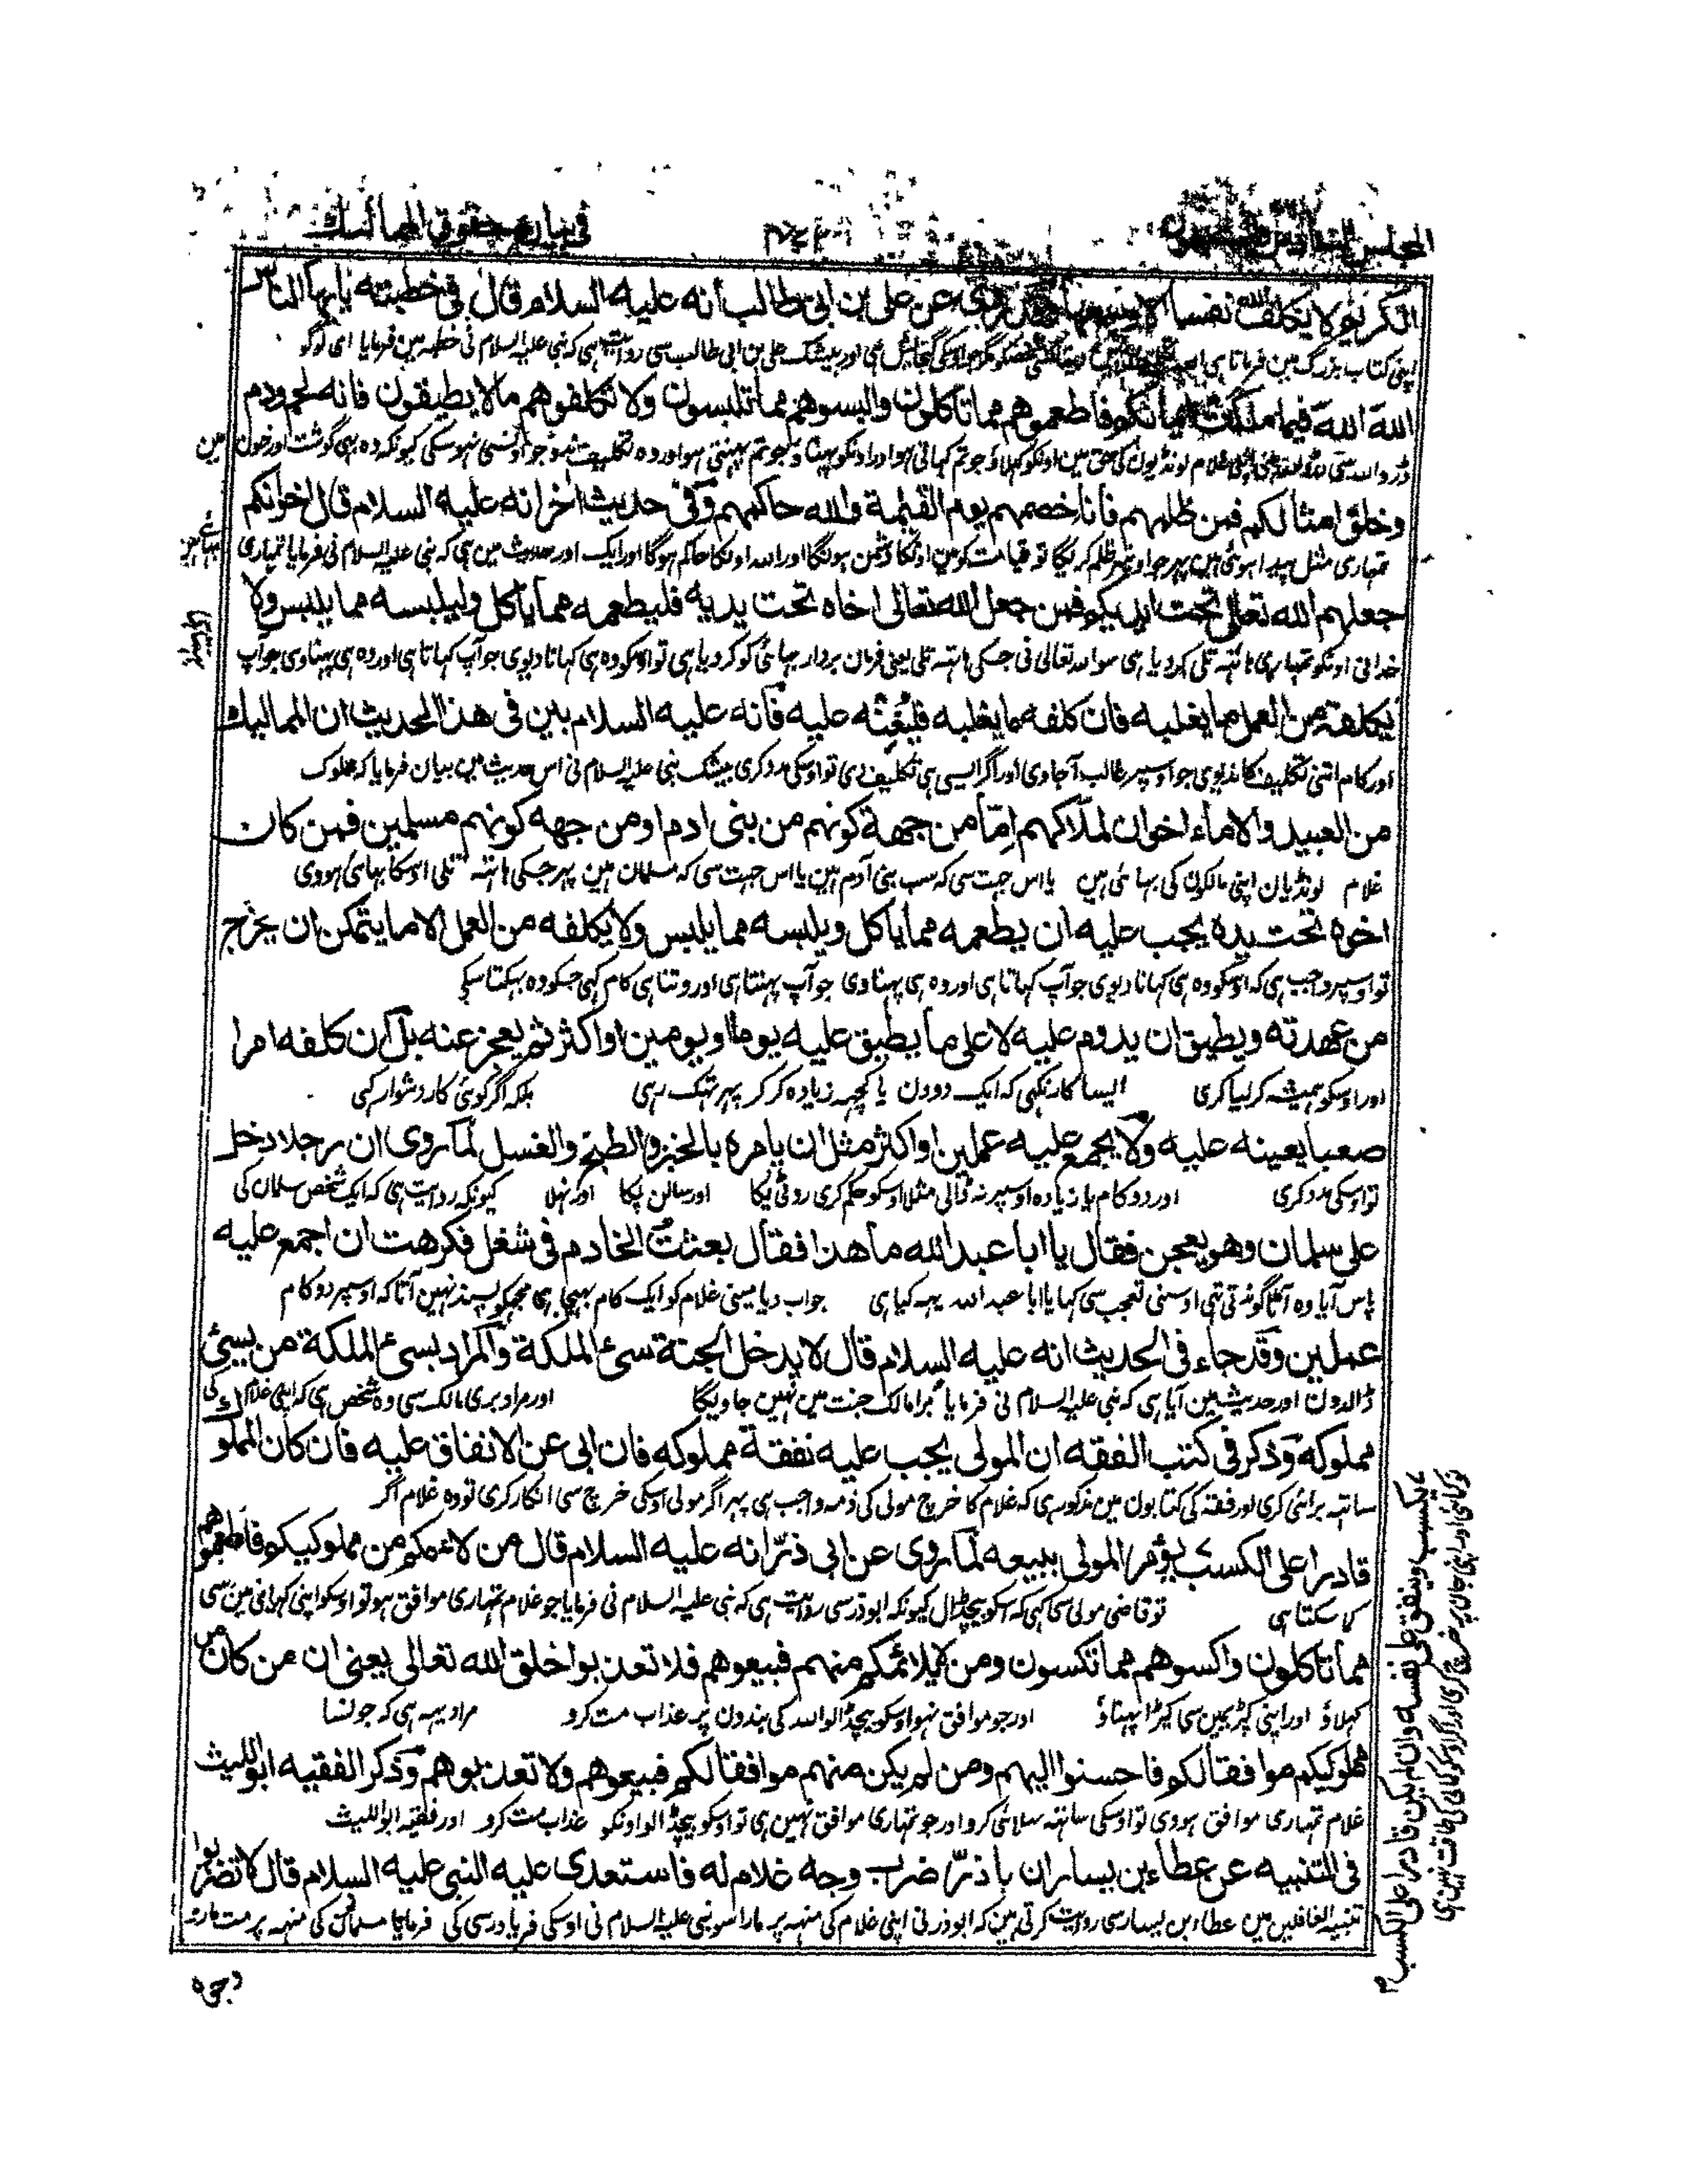 المجلس فى بيان حقوق المماليك
الكريم لا يكلف الله نفسا الا وسعها عن على بن ابى طالب انه عليه السلام قال فى خطبته يا ايها الناس
اپنى كتاب بزرگ مين فرماتا ہى اور بيشك على بن ابى طالب سى روايت ہى كہ نبى عليه السلام نى خطبہ مين فرمايا اى لوگو
الله الله فيما ملكت ايمانكم فاطعموهم مما تاكلون والبسوهم مما تلبسون ولا تكلفوهم مالا يطيقون فانه لحم ودم
ڈرو الله سى غلام لونڈيون كى حق مين اونكو كہلاؤ جو تم كہاتى ہو اور اونكو پہناؤ جو تم پہنتى ہو اور وہ تكليف ندو جو اونسى نہوسكى كيونكہ وہ بہى گوشت اور خون ہين
وخلق امثالكم فمن ظلمهم فانا خصمهم يوم القيمة والله حاكمهم وفى حديث اخر انه عليه السلام قال اخوانكم
تمہارى مثل پيدا ہوئى ہين پہر جو اونپر ظلم كريگا تو قيامت كو مين اونكا دشمن ہونگا اور الله اونكا حاكم ہوگا اور ايك اور حديث مين ہى كہ نبى عليه السلام نى فرمايا تمہارى
جعلهم الله تعالى تحت ايديكم فمن جعل الله تعالى اخاه تحت يديه فليطعمه مما ياكل وليلبسه مما يلبس ولا
خدانى اونكو تمہارى ہاتہہ تلى كرديا ہى سو الله تعالى نى جسكى ہاتہہ تلى يعنى فرمان بردار بہائى كو كرديا ہى تو اوسكو وہ ہى كہانا ديوى جو آپ كہاتا ہى اور وہ ہى پہناوى جو آپ
يكلفه من العمل ما يغلبه فان كلفه ما يغلبه فليعنه عليه فانه عليه السلام بين فى هذا الحديث ان المماليك
اور كام اتنى تكليف كا نديوى جو اوسپر غالب آجاوى اور اگر ايسى ہى تكليف دى تو اوسكى مدد كرى بيشك نبى عليه السلام نى اس حديث مين بيان فرمايا كہ مملوك
من العبيد والاماء اخوان لملاكهم اما من جهة كونهم من بنى ادم او من جهة كونهم مسلمين فمن كان
غلام لونڈيان اپنى مالكون كى بہائى ہين يا اس جہت سى كہ سب بنى آدم ہين يا اس جہت سى كہ مسلمان ہين پہر جسكى ہاتہہ تلى اوسكا بہائى ہووى
اخوه تحت يده يجب عليه ان يطعمه مما ياكل ويلبسه مما يلبس ولا يكلفه من العمل الا ما يتمكن ان يخرج
تو اوسپر واجب ہى كہ اوسكو وہ ہى كہانا ديوى جو آپ كہاتا ہى اور وہ ہى پہناوى جو آپ پہنتا ہى اور وتنا ہى كام كہى جسكو وہ بہگتا سكى
من عهدته ويطيق ان يدوم عليه لا على ما يطيق عليه يوما او يومين او اكثر ثم يعجز عنه بل ان كلفه امرا
اور اوسكو ہميشہ كرليا كرى ايسا كار نكہى كہ ايك دو دن يا كچہہ زيادہ كركر پہر تہك رہى بلكہ اگر كوئى كار دشوار كہى
صعبا يعينه عليه ولا يجمع عليه عملين او اكثر مثل ان يامره بالخبز والطبخ والغسل لما روى ان رجلا دخل
تو اوسكى مدد كرى اور دو كام يا زيادہ اوسپر نہ ڈالى مثلا اوسكو حكم كرى روٹى پكا اور سالن پكا اور نہلا كيونكہ روايت ہى كہ ايك شخص سلمان كى
على سلمان وهو يعجن فقال يا ابا عبد الله ما هذا فقال بعثت الخادم فى شغل فكرهت ان اجمع عليه
پاس آيا وہ آٹا گوندتى تہى اوسنى تعجب سى كہا يا ابا عبد الله يہہ كيا ہى جواب ديا مينى غلام كو ايك كام بہيجا ہى مجہكو پسند نہين آتا كہ اوسپر دو كام
عملين وقد جاء فى الحديث انه عليه السلام قال لا يدخل الجنة سىء الملكة والمراد بسىء الملكة من يسىء
ڈالدون اور حديث مين آيا ہى كہ نبى عليه السلام نى فرمايا برا مالك جنت مين نہين جاويگا اور مراد برى مالك سى وہ شخص ہى كہ اپنى غلام كى
مملوكه وذكر فى كتب الفقه ان المولى يجب عليه نفقة مملوكه فان ابى عن الانفاق عليه فان كان المملوك
ساتہہ برائى كرى اور فقہ كى كتابون مين مذكور ہى كہ غلام كا خرچ مولى كى ذمہ واجب ہى پہر اگر مولى اوسكى خرچ سى انكار كرى تو وہ غلام اگر
قادرا على الكسب يؤمر المولى ببيعه لما روى عن ابى ذر انه عليه السلام قال من لائمكم من مملوكيكم فاطعموهم
كما سكتا ہى تو قاضى مولى سى كہى كہ اسكو بيچڈال كيونكہ ابوذر سى روايت ہى كہ نبى عليه السلام نى فرمايا جو غلام تمہارى موافق ہو تو اوسكو اپنى كہانى مين سى
مما تاكلون واكسوهم مما تكسون ومن لا يلائمكم منهم فبيعوهم فلا تعذبوا خلق الله تعالى يعنى ان من كان من
كہلاؤ اور اپنى كپڑى مين سى كپڑا پہناؤ اور جو موافق نہو اوسكو بيچڈالو الله كى بندون پر عذاب مت كرو مراد يہہ ہى كہ جونسا
مملوكيكم موافقا لكم فاحسنوا اليهم ومن لم يكن منهم موافقا لكم فبيعوهم ولا تعذبوهم وذكر الفقيه ابو الليث
غلام تمہارى موافق ہووى تو اوسكى ساتہہ سلائى كرو اور جو تمہارى موافق نہين ہى تو اوسكو بيچڈالو اونكو عذاب مت كرو اور فقيہ ابو الليث
فى التنبيه عن عطاء بن يسار ان باذر ضرب وجه غلام له فاستعدى عليه النبى عليه السلام قال لا تضربوا
تنبيہ الغافلين مين عطاء ابن يسار سى روايت كرتى ہين كہ ابوذر نى اپنى غلام كى منہہ پر مارا سو نبى عليه السلام نى اوسكى فرياد رسى كى فرمايا مسلمان كى منہہ پر مت مارنا
وجوه
يكسب وينفق على نفسه وان لم يكن قادرا على الكسب